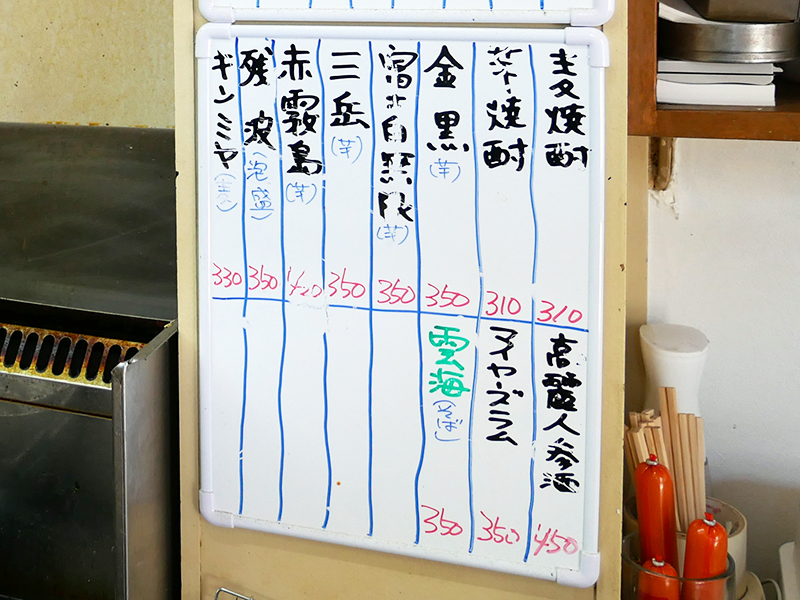 麦焼酎 310
芋焼酎 310
金黒(芋) 350
富乃宝無限(芋) 350
三岳(芋) 350
赤霧島(芋) 420
残波(泡盛) 350
キンミヤ 330
高麗人参酒 450
マイヤーズラム 350
雲海(そば) 350